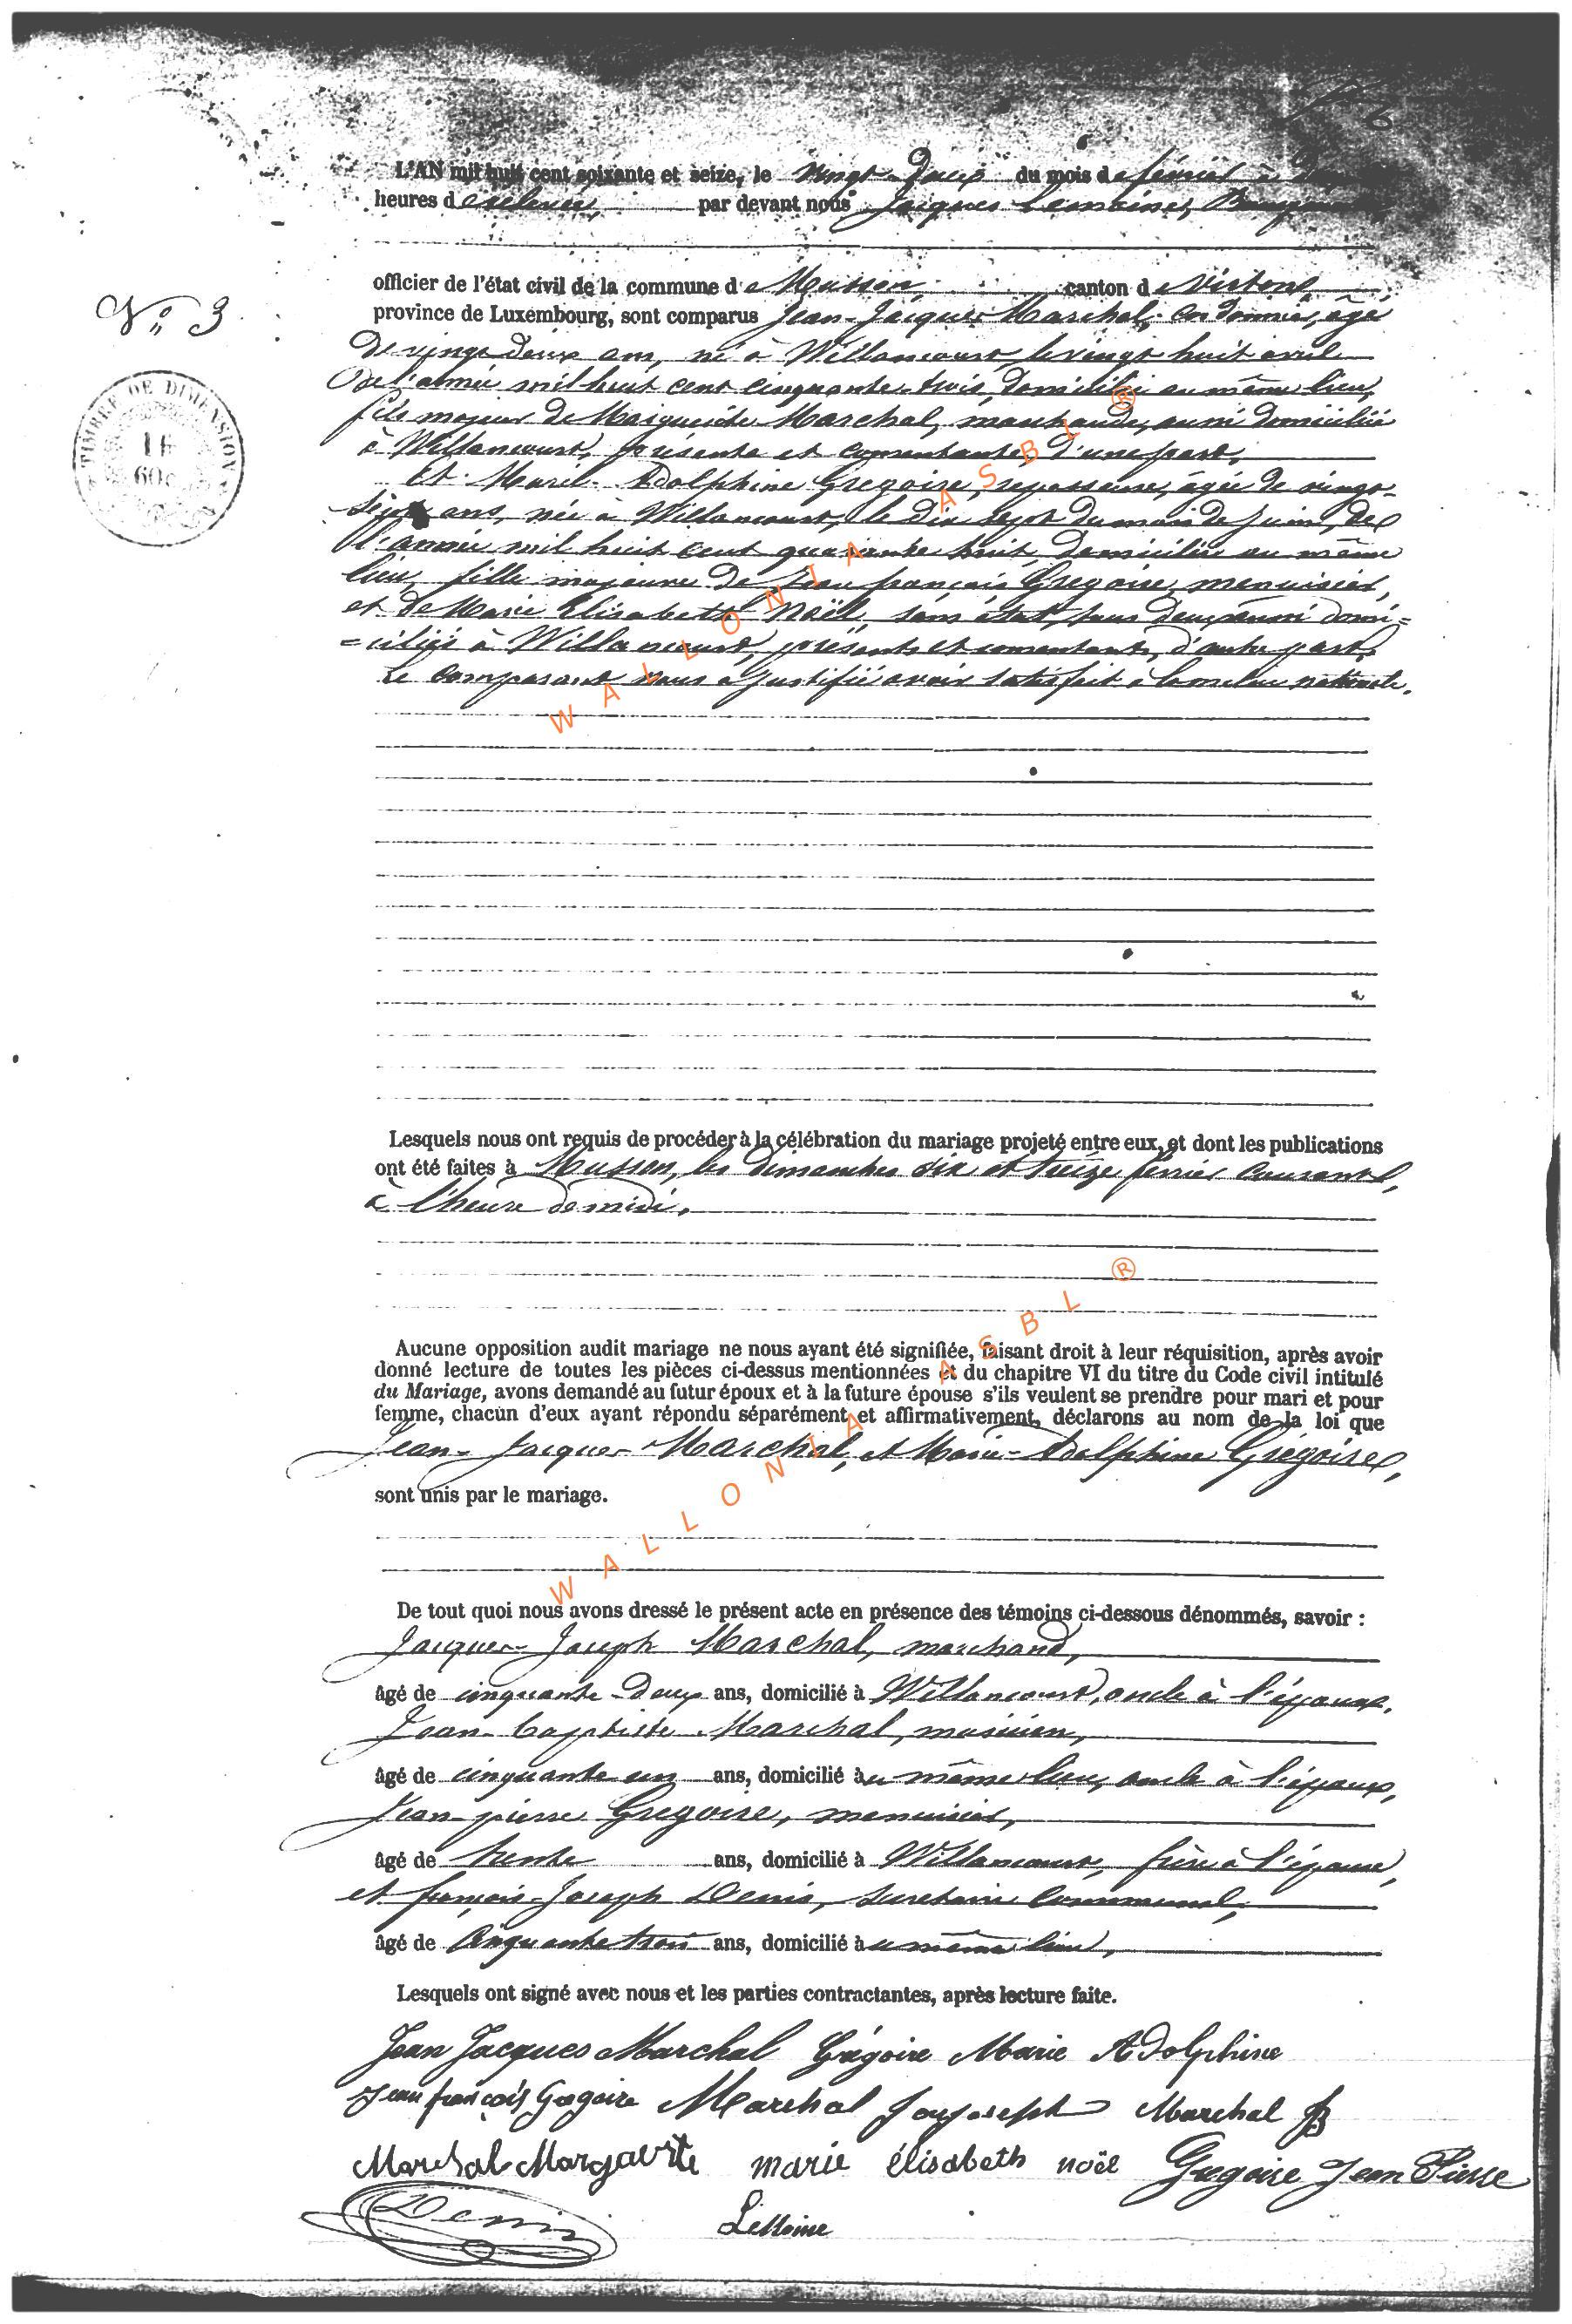 6
L'AN mil huit cent soixante et seize, le vingt-deux du mois de février à
heures de relevée, par devant nous Jacques Lemoine, Bourgmestre
officier de l'état civil de la commune de Musson, canton de Virton,
N° 3
province de Luxembourg, sont comparus Jean-Jacques Marchal, cordonnier, âgé
de vingt deux ans, né à Willancourt, le vingt huit avril
de l'année mil huit cent cinquante-trois, domicilié au même lieu,
fils majeur de Marguerite Marchal, marchande, aussi domiciliée
à Willancourt, présente et consentante, d'une part,
TIMBRE DE DIMENSION
1 F
60 C
Et Marie-Adolphine Gregoire, repasseuse, âgée de vingt-
sept ans, née à Willancourt, le dix sept du mois de juin, de
l'année mil huit cent quarante huit, domiciliée au même
lieu, fille majeure de Jean françois Gregoire, menuisier,
et de Marie Elisabeth Noël, sans état, tous deux aussi domi=
=ciliés à Willancourt, présents et consentants, d'autre part.
Le comparant nous a justifié avoir satisfait à la milice nationale.
WALLONIA ASBL ®
Lesquels nous ont requis de procéder à la célébration du mariage projeté entre eux, et dont les publications
ont été faites à Musson, les dimanches six et treize février courant,
à l'heure de midi.
Aucune opposition audit mariage ne nous ayant été signifiée, faisant droit à leur réquisition, après avoir
donné lecture de toutes les pièces ci-dessus mentionnées et du chapitre VI du titre du Code civil intitulé
du Mariage, avons demandé au futur époux et à la future épouse s'ils veulent se prendre pour mari et pour
femme, chacun d'eux ayant répondu séparément et affirmativement, déclarons au nom de la loi que
Jean-Jacques Marchal, et Marie-Adolphine Grégoire,
sont unis par le mariage.
WALLONIA ASBL ®
De tout quoi nous avons dressé le présent acte en présence des témoins ci-dessous dénommés, savoir :
Jacques-Joseph Marchal, marchand,
âgé de cinquante-deux ans, domicilié à Willancourt, oncle à l'époux,
Jean-baptiste Marchal, musicien,
âgé de cinquante un ans, domicilié au même lieu, oncle à l'époux,
Jean-pierre Gregoire, menuisier,
âgé de trente ans, domicilié à Willancourt, frère à l'épouse,
et françois-Joseph Denis, secretaire Communal,
âgé de Cinquante trois ans, domicilié au même lieu,
Lesquels ont signé avec nous et les parties contractantes, après lecture faite.
Jean Jacques Marchal Grégoire Marie Adolphine
Jean françois Gregoire Marchal Jacq joseph Marchal JB
Marchal Margaurite marie élisabeth noël Gregoire Jean Pierre
Denis LeMoine